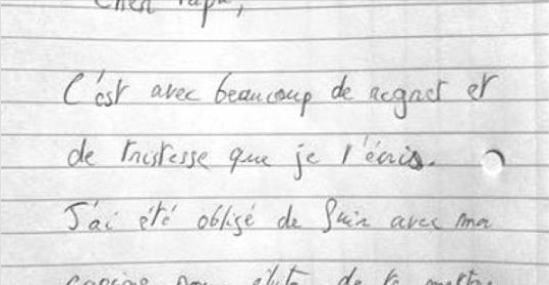 Cher Papa,
C'est avec beaucoup de regret et
de tristesse que je t'écris.
J'ai été obligé de fuir avec ma
copine pour de te mettre